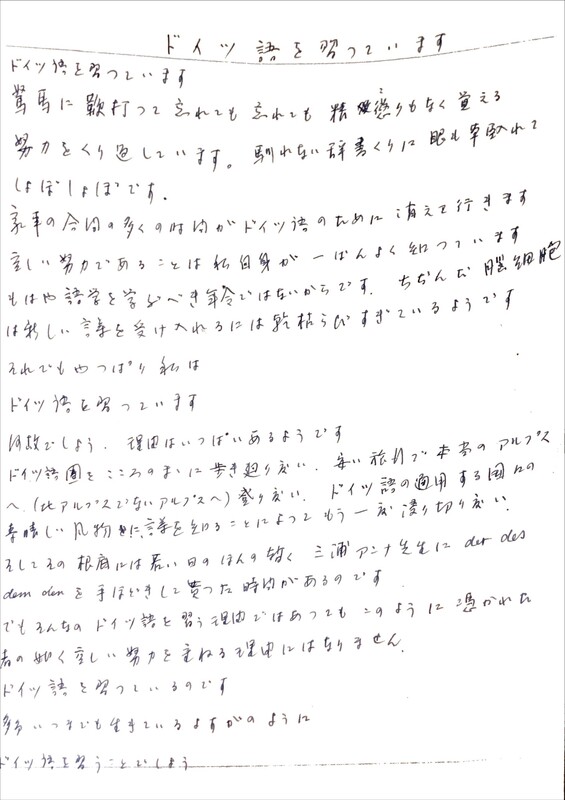 ドイツ語を習っています
ドイツ語を習っています
駑馬に鞭打って忘れても忘れても性懲りもなく覚える
努力をくり返しています。馴れない辞書くりに眼も草臥れて
しょぼしょぼです。
家事の合間の多くの時間がドイツ語のために消えて行きます
空しい努力であることは私自身が一ばんよく知っています
もはや語学を学ぶべき年令ではないからです。ちぢんだ脳細胞
は新しい言葉を受け入れるには乾枯らびすぎているようです
それでもやっぱり私は
ドイツ語を習っています
何故でしょう。理由はいっぱいあるようです
ドイツ語圏をこころのままに歩き廻り度い。安い旅行で本当のアルプス
へ(北アルプスでないアルプスへ)登り度い。ドイツ語の通用する国々の
素晴しい風物に言葉を知ることによってもう一度浸り切り度い。
そしてその根底には若い日のほんの暫く三浦アンナ先生に der des
dem den を手ほどきして貰った時間があるのです
でもそんなのドイツ語を習う理由ではあってもこのように憑かれた
者の如く空しい努力を重ねる理由にはなりません。
ドイツ語を習っているのです
多分いつまでも生きているよすがのように
ドイツ語を習うことでしょう